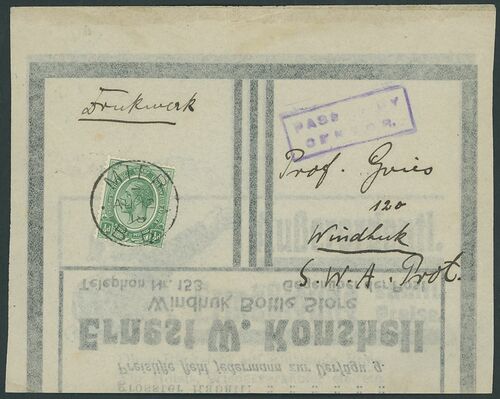 Drukwerk
PASSED BY
CENSOR.
MIER
Prof. Gries
120
Windhuk
S. W. A. Prot.
Telephon Nr. 153
Windhuk Bottle Store
Ernest W. Konshell
Preisliste steht jedermann zur Verfügung.
grösster